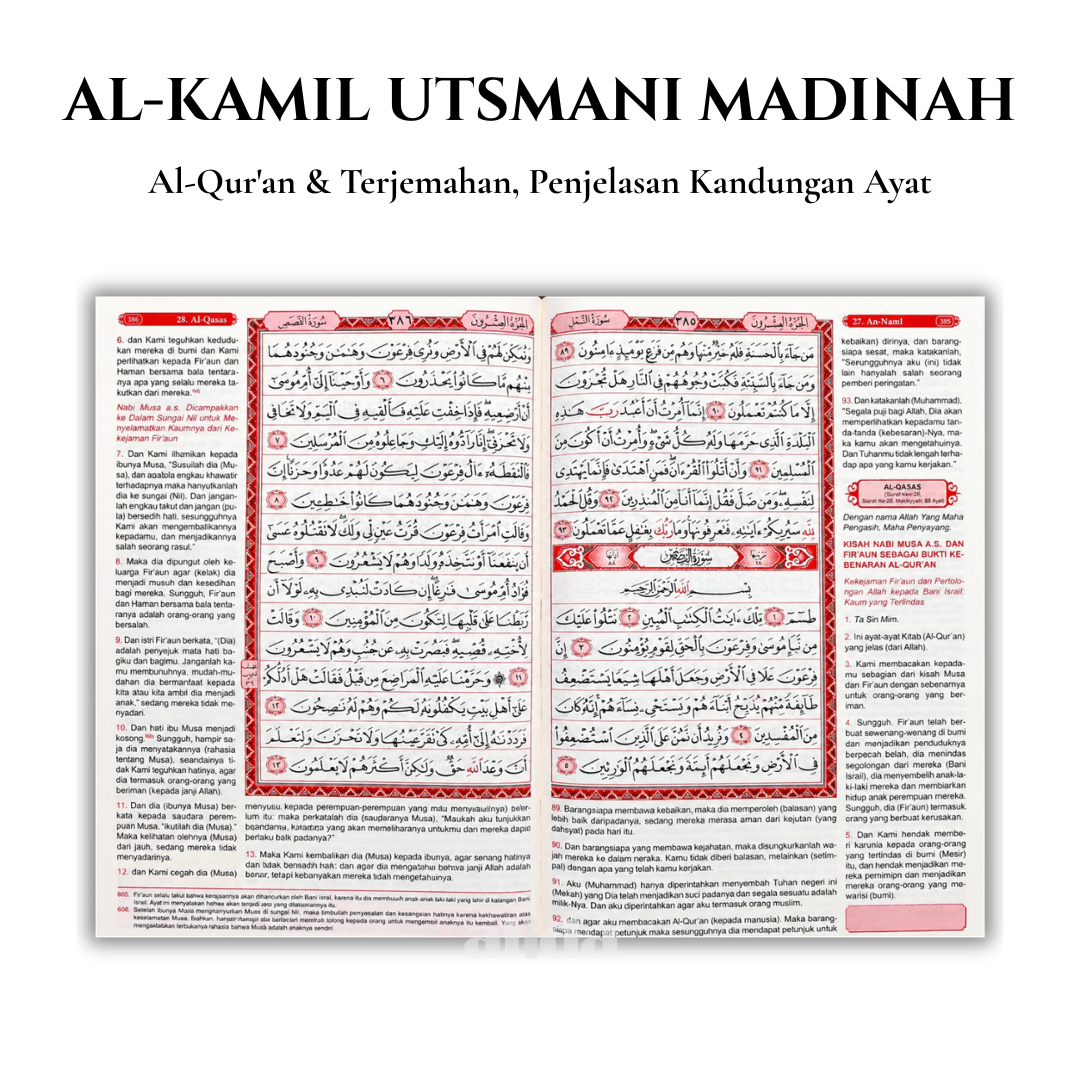 AL-KAMIL UTSMANI MADINAH
Al-Qur'an & Terjemahan, Penjelasan Kandungan Ayat
27. An-Naml 385
الجزء العشرون ٣٨٥ سورة النمل
مَن جَآءَ بِٱلْحَسَنَةِ فَلَهُۥ خَيْرٌ مِّنْهَا وَهُم مِّن فَزَعٍ يَوْمَئِذٍ ءَامِنُونَ ٨٩
وَمَن جَآءَ بِٱلسَّيِّئَةِ فَكُبَّتْ وُجُوهُهُمْ فِى ٱلنَّارِ هَلْ تُجْزَوْنَ
إِلَّا مَا كُنتُمْ تَعْمَلُونَ ٩٠ إِنَّمَآ أُمِرْتُ أَنْ أَعْبُدَ رَبَّ هَٰذِهِ
ٱلْبَلْدَةِ ٱلَّذِى حَرَّمَهَا وَلَهُۥ كُلُّ شَىْءٍ وَأُمِرْتُ أَنْ أَكُونَ مِنَ
ٱلْمُسْلِمِينَ ٩١ وَأَنْ أَتْلُوَا۟ ٱلْقُرْءَانَ فَمَنِ ٱهْتَدَىٰ فَإِنَّمَا يَهْتَدِى
لِنَفْسِهِۦ وَمَن ضَلَّ فَقُلْ إِنَّمَآ أَنَا۠ مِنَ ٱلْمُنذِرِينَ ٩٢ وَقُلِ ٱلْحَمْدُ
لِلَّهِ سَيُرِيكُمْ ءَايَٰتِهِۦ فَتَعْرِفُونَهَا وَمَا رَبُّكَ بِغَٰفِلٍ عَمَّا تَعْمَلُونَ ٩٣
ترتيبها ٢٨ سورة القصص آياتها ٨٨
بِسْمِ ٱللَّهِ ٱلرَّحْمَٰنِ ٱلرَّحِيمِ
طسٓمٓ ١ تِلْكَ ءَايَٰتُ ٱلْكِتَٰبِ ٱلْمُبِينِ ٢ نَتْلُوا۟ عَلَيْكَ
مِن نَّبَإِ مُوسَىٰ وَفِرْعَوْنَ بِٱلْحَقِّ لِقَوْمٍ يُؤْمِنُونَ ٣ إِنَّ
فِرْعَوْنَ عَلَا فِى ٱلْأَرْضِ وَجَعَلَ أَهْلَهَا شِيَعًا يَسْتَضْعِفُ
طَآئِفَةً مِّنْهُمْ يُذَبِّحُ أَبْنَآءَهُمْ وَيَسْتَحْىِۦ نِسَآءَهُمْ إِنَّهُۥ كَانَ
مِنَ ٱلْمُفْسِدِينَ ٤ وَنُرِيدُ أَن نَّمُنَّ عَلَى ٱلَّذِينَ ٱسْتُضْعِفُوا۟
فِى ٱلْأَرْضِ وَنَجْعَلَهُمْ أَئِمَّةً وَنَجْعَلَهُمُ ٱلْوَٰرِثِينَ ٥
89. Barangsiapa membawa kebaikan, maka dia memperoleh (balasan) yang
lebih baik daripadanya, sedang mereka merasa aman dari kejutan (yang
dahsyat) pada hari itu.
90. Dan barangsiapa yang membawa kejahatan, maka disungkurkanlah wa-
jah mereka ke dalam neraka. Kamu tidak diberi balasan, melainkan (setim-
pal) dengan apa yang telah kamu kerjakan.
91. Aku (Muhammad) hanya diperintahkan menyembah Tuhan negeri ini
(Mekah) yang Dia telah menjadikan suci padanya dan segala sesuatu adalah
milik-Nya. Dan aku diperintahkan agar aku termasuk orang muslim.
92. dan agar aku membacakan Al-Qur'an (kepada manusia). Maka barang-
siapa mendapat petunjuk maka sesungguhnya dia mendapat petunjuk untuk
kebaikan) dirinya, dan barang-
siapa sesat, maka katakanlah,
"Sesungguhnya aku (ini) tidak
lain hanyalah salah seorang
pemberi peringatan."
93. Dan katakanlah (Muhammad).
"Segala puji bagi Allah, Dia akan
memperlihatkan kepadamu tan-
da-tanda (kebesaran)-Nya, ma-
ka kamu akan mengetahuinya.
Dan Tuhanmu tidak lengah terha-
dap apa yang kamu kerjakan."
AL-QASAS
Surat Ke-28, Makkiyyah: 88 Ayat
Dengan nama Allah Yang Maha
Pengasih, Maha Penyayang.
KISAH NABI MUSA A.S. DAN
FIR'AUN SEBAGAI BUKTI KE-
BENARAN AL-QUR'AN
Kekejaman Fir'aun dan Pertolo-
ngan Allah kepada Bani Israil:
Kaum yang Tertindas
1. Ta Sin Mim.
2. Ini ayat-ayat Kitab (Al-Qur'an)
yang jelas (dari Allah).
3. Kami membacakan kepada-
mu sebagian dari kisah Musa
dan Fir'aun dengan sebenarnya
untuk orang-orang yang ber-
iman.
4. Sungguh. Fir'aun telah ber-
buat sewenang-wenang di bumi
dan menjadikan penduduknya
berpecah belah, dia menindas
segolongan dari mereka (Bani
Israil), dia menyembelih anak-la-
ki-laki mereka dan membiarkan
hidup anak perempuan mereka.
Sungguh, dia (Fir'aun) termasuk
orang yang berbuat kerusakan.
5. Dan Kami hendak membe-
ri karunia kepada orang-orang
yang tertindas di bumi (Mesir)
itu, dan hendak menjadikan me-
reka pemimpin dan menjadikan
mereka orang-orang yang me-
warisi (bumi).
386 28. Al-Qasas
الجزء العشرون ٣٨٦ سورة القصص
وَنُمَكِّنَ لَهُمْ فِى ٱلْأَرْضِ وَنُرِىَ فِرْعَوْنَ وَهَٰمَٰنَ وَجُنُودَهُمَا
مِنْهُم مَّا كَانُوا۟ يَحْذَرُونَ ٦ وَأَوْحَيْنَآ إِلَىٰٓ أُمِّ مُوسَىٰٓ
أَنْ أَرْضِعِيهِ فَإِذَا خِفْتِ عَلَيْهِ فَأَلْقِيهِ فِى ٱلْيَمِّ وَلَا تَخَافِى
وَلَا تَحْزَنِىٓ إِنَّا رَآدُّوهُ إِلَيْكِ وَجَاعِلُوهُ مِنَ ٱلْمُرْسَلِينَ ٧
فَٱلْتَقَطَهُۥٓ ءَالُ فِرْعَوْنَ لِيَكُونَ لَهُمْ عَدُوًّا وَحَزَنًا إِنَّ
فِرْعَوْنَ وَهَٰمَٰنَ وَجُنُودَهُمَا كَانُوا۟ خَٰطِـِٔينَ ٨
وَقَالَتِ ٱمْرَأَتُ فِرْعَوْنَ قُرَّتُ عَيْنٍ لِّى وَلَكَ لَا تَقْتُلُوهُ عَسَىٰٓ
أَن يَنفَعَنَآ أَوْ نَتَّخِذَهُۥ وَلَدًا وَهُمْ لَا يَشْعُرُونَ ٩ وَأَصْبَحَ
فُؤَادُ أُمِّ مُوسَىٰ فَٰرِغًا إِن كَادَتْ لَتُبْدِى بِهِۦ لَوْلَآ أَن
رَّبَطْنَا عَلَىٰ قَلْبِهَا لِتَكُونَ مِنَ ٱلْمُؤْمِنِينَ ١٠ وَقَالَتْ
لِأُخْتِهِۦ قُصِّيهِ فَبَصُرَتْ بِهِۦ عَن جُنُبٍ وَهُمْ لَا يَشْعُرُونَ
١١ ۞ وَحَرَّمْنَا عَلَيْهِ ٱلْمَرَاضِعَ مِن قَبْلُ فَقَالَتْ هَلْ أَدُلُّكُمْ
عَلَىٰٓ أَهْلِ بَيْتٍ يَكْفُلُونَهُۥ لَكُمْ وَهُمْ لَهُۥ نَٰصِحُونَ ١٢
فَرَدَدْنَٰهُ إِلَىٰٓ أُمِّهِۦ كَىْ تَقَرَّ عَيْنُهَا وَلَا تَحْزَنَ وَلِتَعْلَمَ
أَنَّ وَعْدَ ٱللَّهِ حَقٌّ وَلَٰكِنَّ أَكْثَرَهُمْ لَا يَعْلَمُونَ ١٣
6. dan Kami teguhkan kedudu-
kan mereka di bumi dan Kami
perlihatkan kepada Fir'aun dan
Haman bersama bala tentara-
nya apa yang selalu mereka ta-
kutkan dari mereka.
Nabi Musa a.s. Dicampakkan
ke Dalam Sungai Nil untuk Me-
nyelamatkan Kaumnya dari Ke-
kejaman Fir'aun
7. Dan Kami ilhamikan kepada
ibunya Musa, "Susuilah dia (Mu-
sa), dan apabila engkau khawatir
terhadapnya maka hanyutkanlah
dia ke sungai (Nil). Dan jangan-
lah engkau takut dan jangan (pu-
la) bersedih hati, sesungguhnya
Kami akan mengembalikannya
kepadamu, dan menjadikannya
salah seorang rasul."
8. Maka dia dipungut oleh ke-
luarga Fir'aun agar (kelak) dia
menjadi musuh dan kesedihan
bagi mereka. Sungguh, Fir'aun
dan Haman bersama bala tenta-
ranya adalah orang-orang yang
bersalah.
9. Dan istri Fir'aun berkata, "(Dia)
adalah penyejuk mata hati ba-
giku dan bagimu. Janganlah ka-
mu membunuhnya, mudah-mu-
dahan dia bermanfaat kepada
kita atau kita ambil dia menjadi
anak," sedang mereka tidak me-
nyadari.
10. Dan hati ibu Musa menjadi
kosong. Sungguh, hampir sa-
ja dia menyatakannya (rahasia
tentang Musa), seandainya ti-
dak Kami teguhkan hatinya, agar
dia termasuk orang-orang yang
beriman (kepada janji Allah).
11. Dan dia (ibunya Musa) ber-
kata kepada saudara perem-
puan Musa, "Ikutilah dia (Musa)."
Maka kelihatan olehnya (Musa)
dari jauh, sedang mereka tidak
menyadarinya.
12. dan Kami cegah dia (Musa)
menyusu kepada perempuan-perempuan yang mau menyusui(nya) sebe-
lum itu: maka berkatalah dia (saudaranya Musa). "Maukah aku tunjukkan
kepadamu, keluarga yang akan memeliharanya untukmu dan mereka dapat
berlaku baik padanya?"
13. Maka Kami kembalikan dia (Musa) kepada ibunya, agar senang hatinya
dan tidak bersedih hati; dan agar dia mengetahui bahwa janji Allah adalah
benar, tetapi kebanyakan mereka tidak mengetahuinya.
605. Fir'aun selalu takut bahwa kerajaannya akan dihancurkan oleh Bani Israil, karena itu dia membunuh anak-anak laki-laki yang lahir di kalangan Bani
Israil. Ayat ini menyatakan bahwa akan terjadi apa yang dikhawatirkannya itu.
606. Setelah ibunya Musa menghanyutkan Musa di sungai Nil, maka timbullah penyesalan dan kesangsian hatinya karena kekhawatiran atas
keselamatan Musa. Bahkan, hampir-hampir dia berteriak meminta tolong kepada orang untuk mengambil anaknya itu kembali. Yang akan
mengakibatkan terbukanya rahasia bahwa Musa adalah anaknya sendiri.